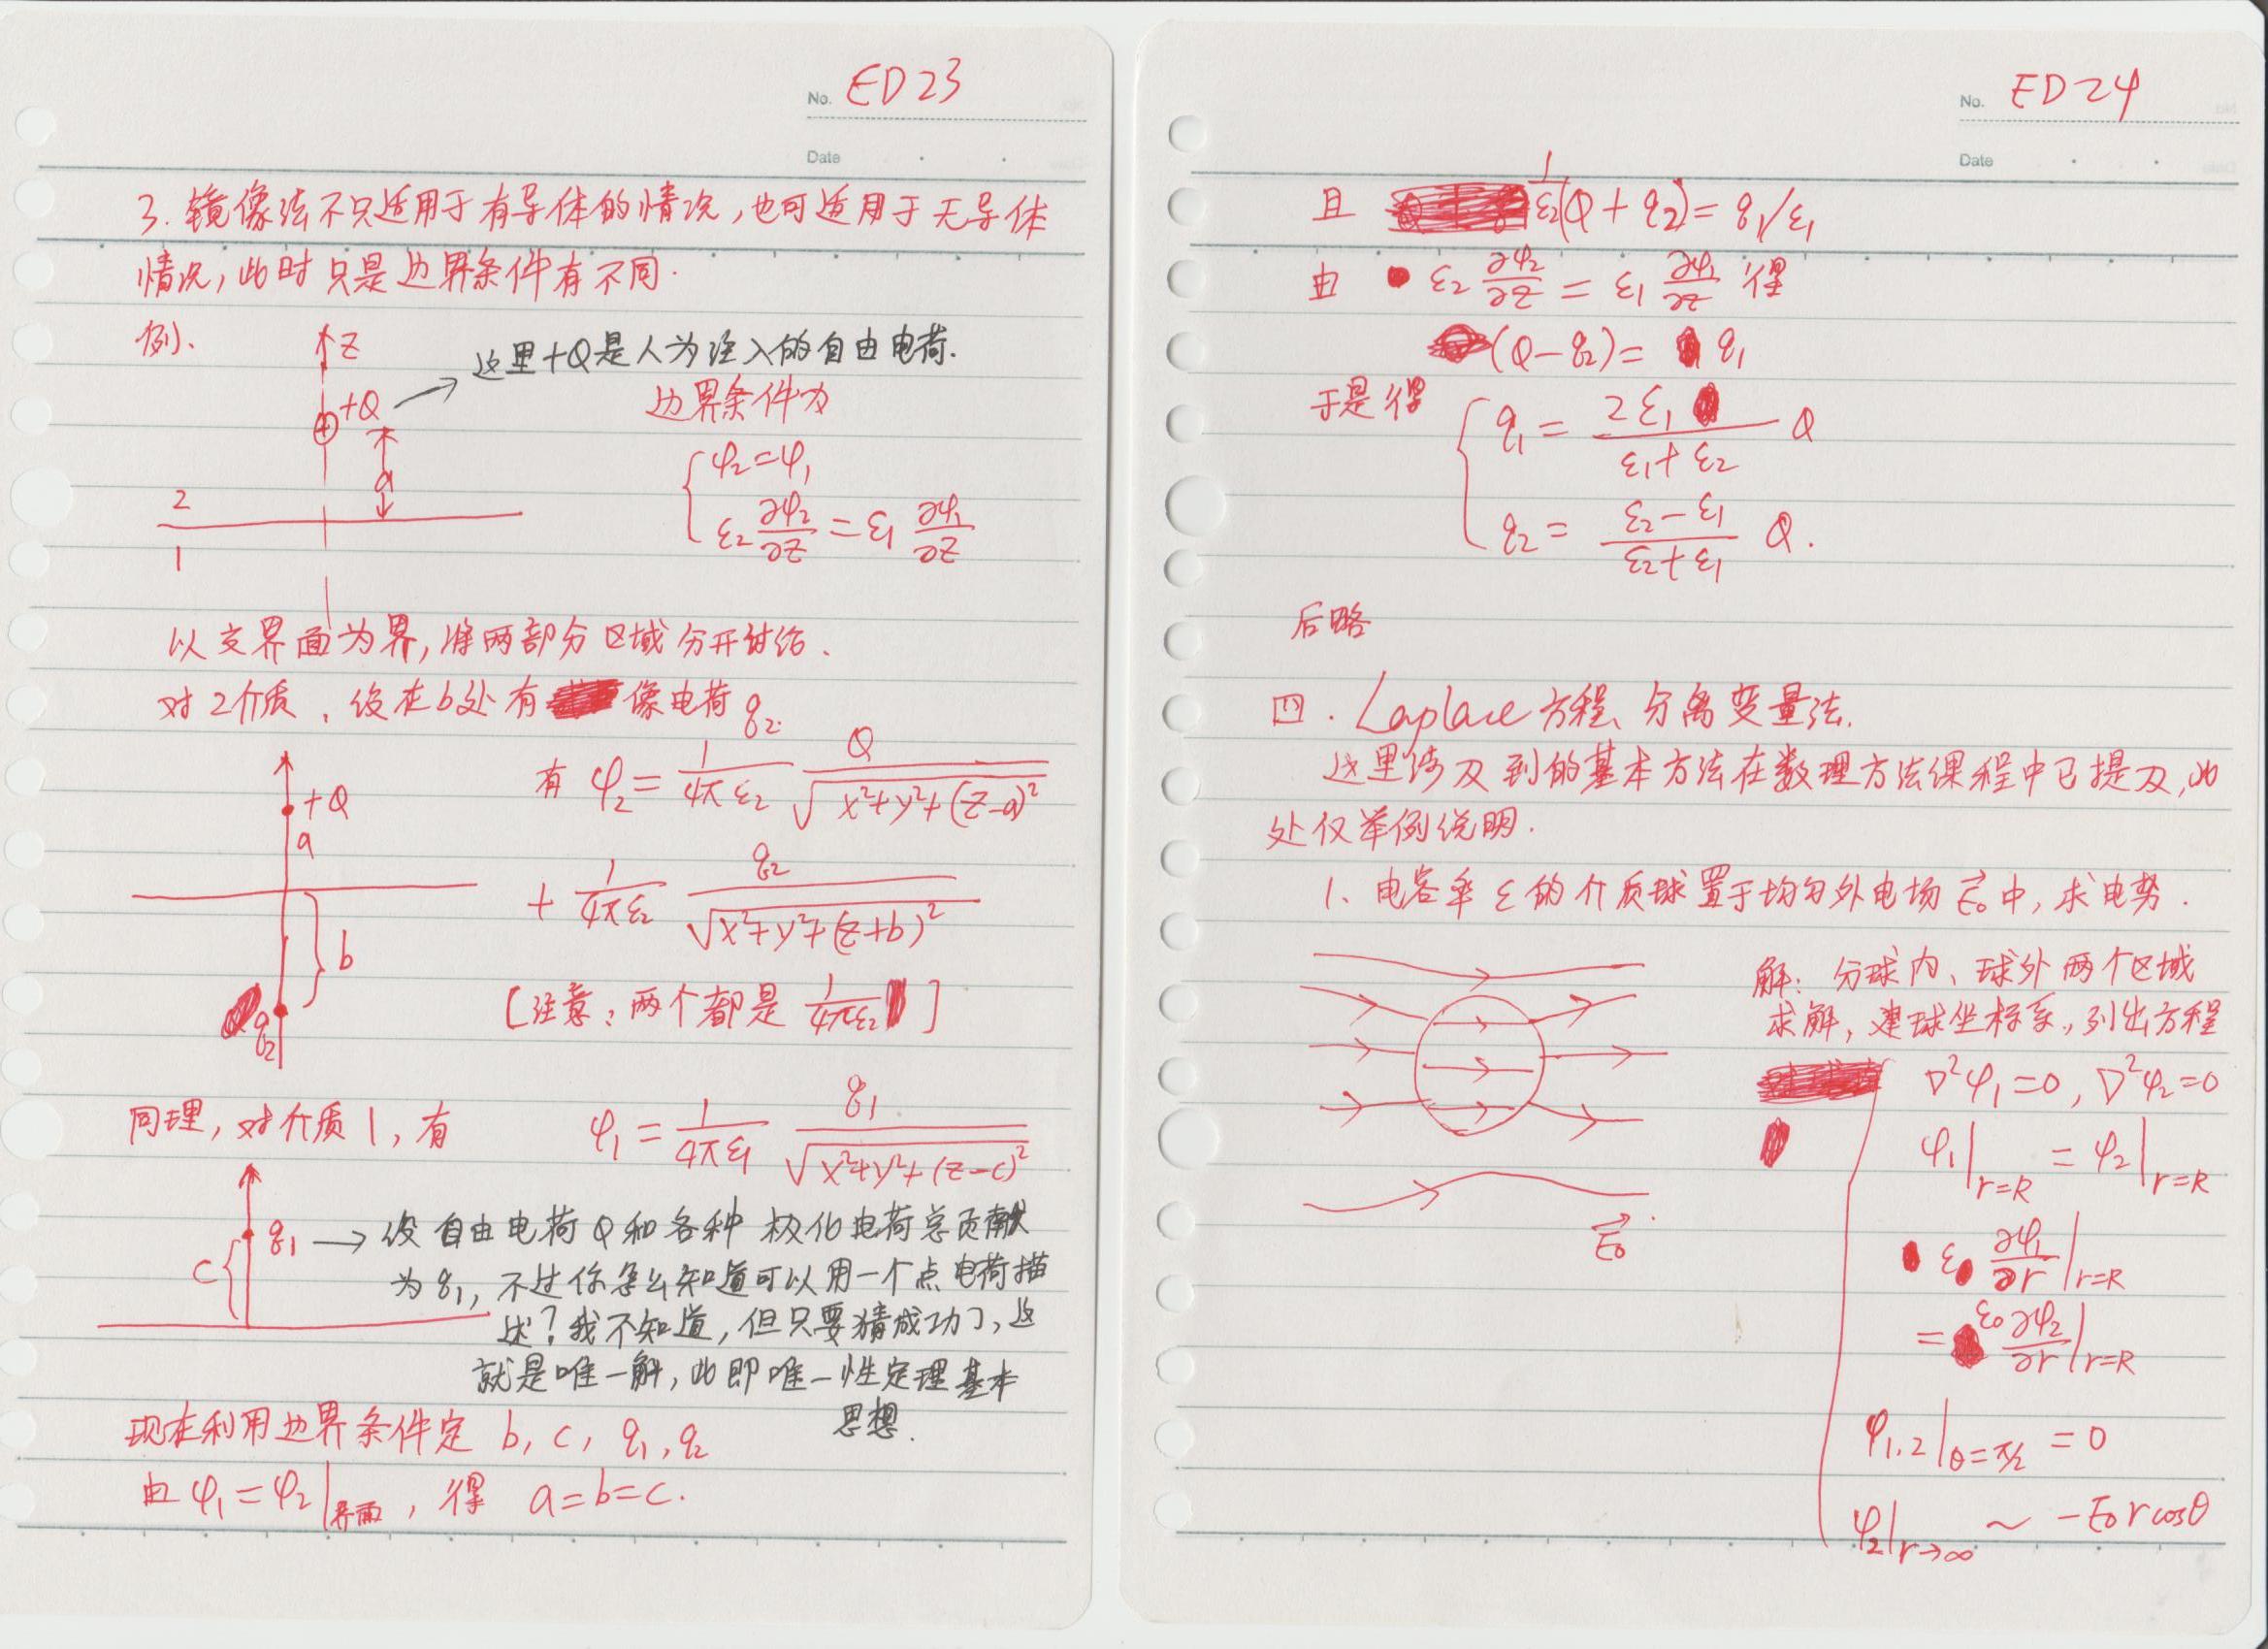 No. ED23
Date
3. 镜像法不只适用于有导体的情况,也可适用于无导体
情况,此时只是边界条件有不同.
例、
z
这里+Q是人为注入的自由电荷.
+Q
边界条件为
a
φ₂=φ₁
ε₂ ∂φ₂/∂z = ε₁ ∂φ₁/∂z
2
1
以交界面为界,将两部分区域分开讨论.
对2介质、设在b处有像电荷q₂.
有 φ₂ = 1/(4πε₂) Q/√(x²+y²+(z-a)²)
+ 1/(4πε₂) q₂/√(x²+y²+(z+b)²)
+Q
a
b
q₂
[注意:两个都是 1/(4πε₂)]
同理,对介质1,有 φ₁ = 1/(4πε₁) q₁/√(x²+y²+(z-c)²)
q₁ → 设自由电荷Q和各种极化电荷总贡献
c
为q₁,不过你怎么知道可以用一个点电荷描
述?我不知道,但只要猜成功了,这
就是唯一解,此即唯一性定理基本
思想.
现在利用边界条件定 b, c, q₁, q₂
由φ₁=φ₂|界面, 得 a=b=c.
No. ED24
Date
且 1/ε₂(Q+q₂)=q₁/ε₁
由 ε₂ ∂φ₂/∂z = ε₁ ∂φ₁/∂z 得
(Q-q₂)= q₁
于是得 q₁ = 2ε₁/(ε₁+ε₂) Q
q₂ = (ε₂-ε₁)/(ε₂+ε₁) Q.
后略
四. Laplace方程、分离变量法.
这里涉及到的基本方法在数理方法课程中已提及,此
处仅举例说明.
1、电容率ε的介质球置于均匀外电场E⃗₀中,求电势.
解: 分球内、球外两个区域
求解,建球坐标系,列出方程
∇²φ₁=0, ∇²φ₂=0
φ₁|r=R = φ₂|r=R
E⃗₀
ε ∂φ₁/∂r|r=R
= ε₀ ∂φ₂/∂r|r=R
φ₁,₂|θ=π/2 = 0
φ₂|r→∞ ~ -E₀rcosθ